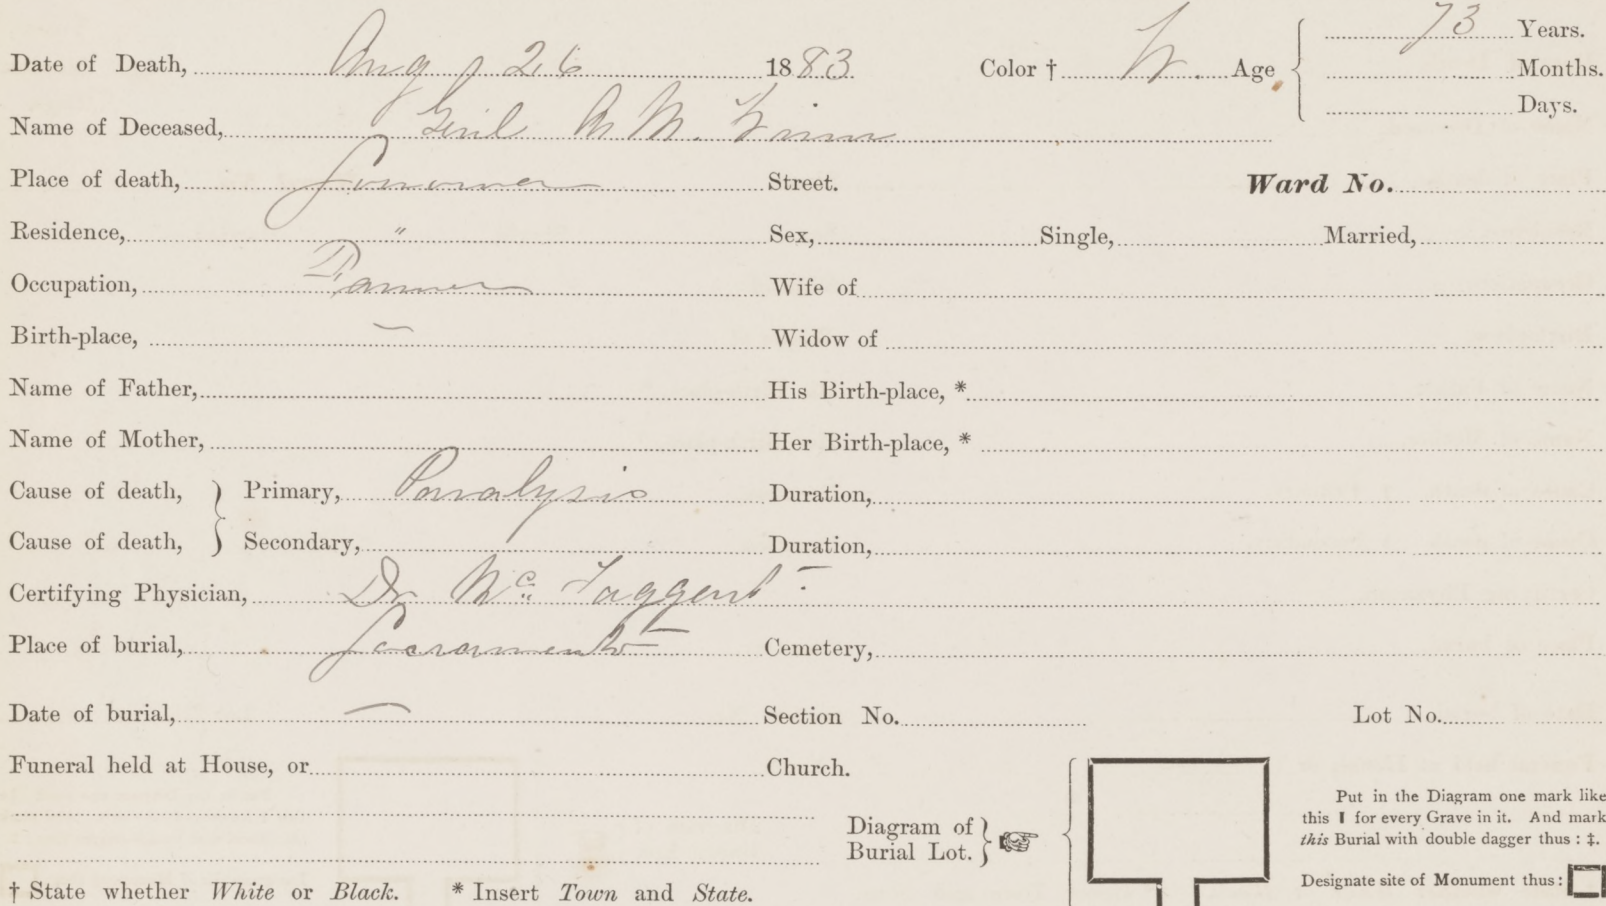 Date of Death, Aug 26 1883 Color † W. Age 73 Years.
Months.
Days.
Name of Deceased, Genl A M. Winn
Place of death, Sonoma Street. Ward No.
Residence, " Sex, Single, Married,
Occupation, Farmer Wife of
Birth-place, — Widow of
Name of Father, His Birth-place, *
Name of Mother, Her Birth-place, *
Cause of death, Primary, Paralysis Duration,
Cause of death, Secondary, Duration,
Certifying Physician, Dr Mc Taggert
Place of burial, Sacramento Cemetery,
Date of burial, — Section No. Lot No.
Funeral held at House, or Church.
Diagram of
Burial Lot.
Put in the Diagram one mark like
this I for every Grave in it. And mark
this Burial with double dagger thus : ‡.
Designate site of Monument thus :
† State whether White or Black. * Insert Town and State.